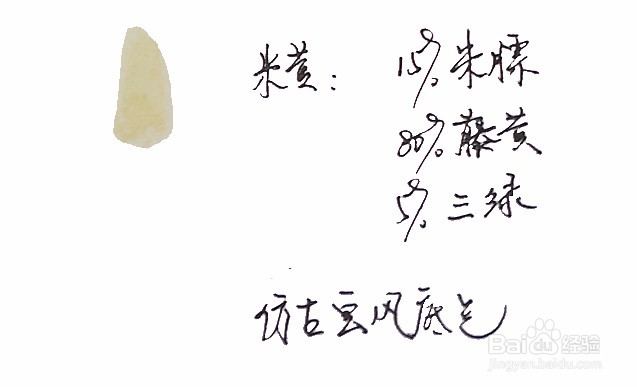 米黄： 15% 朱膘
80% 藤黄
5% 三绿
仿古画风底色
Baidu 经验
jingyan.baidu.com